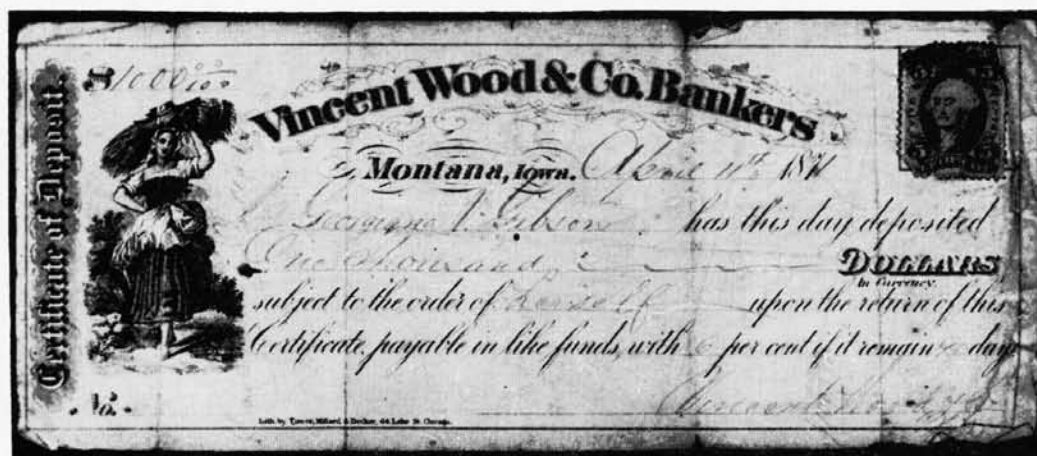 Certificate of Deposit.
$1000 00/100
Vincent Wood & Co. Bankers
Montana, Iowa. April 11th 1871
Gibson has this day deposited
One thousand DOLLARS
In Currency.
subject to the order of herself upon the return of this
Certificate, payable in like funds, with 6 per cent if it remain days
No.
Vincent Wood & Co
Lith. by & 44 Lake St. Chicago.